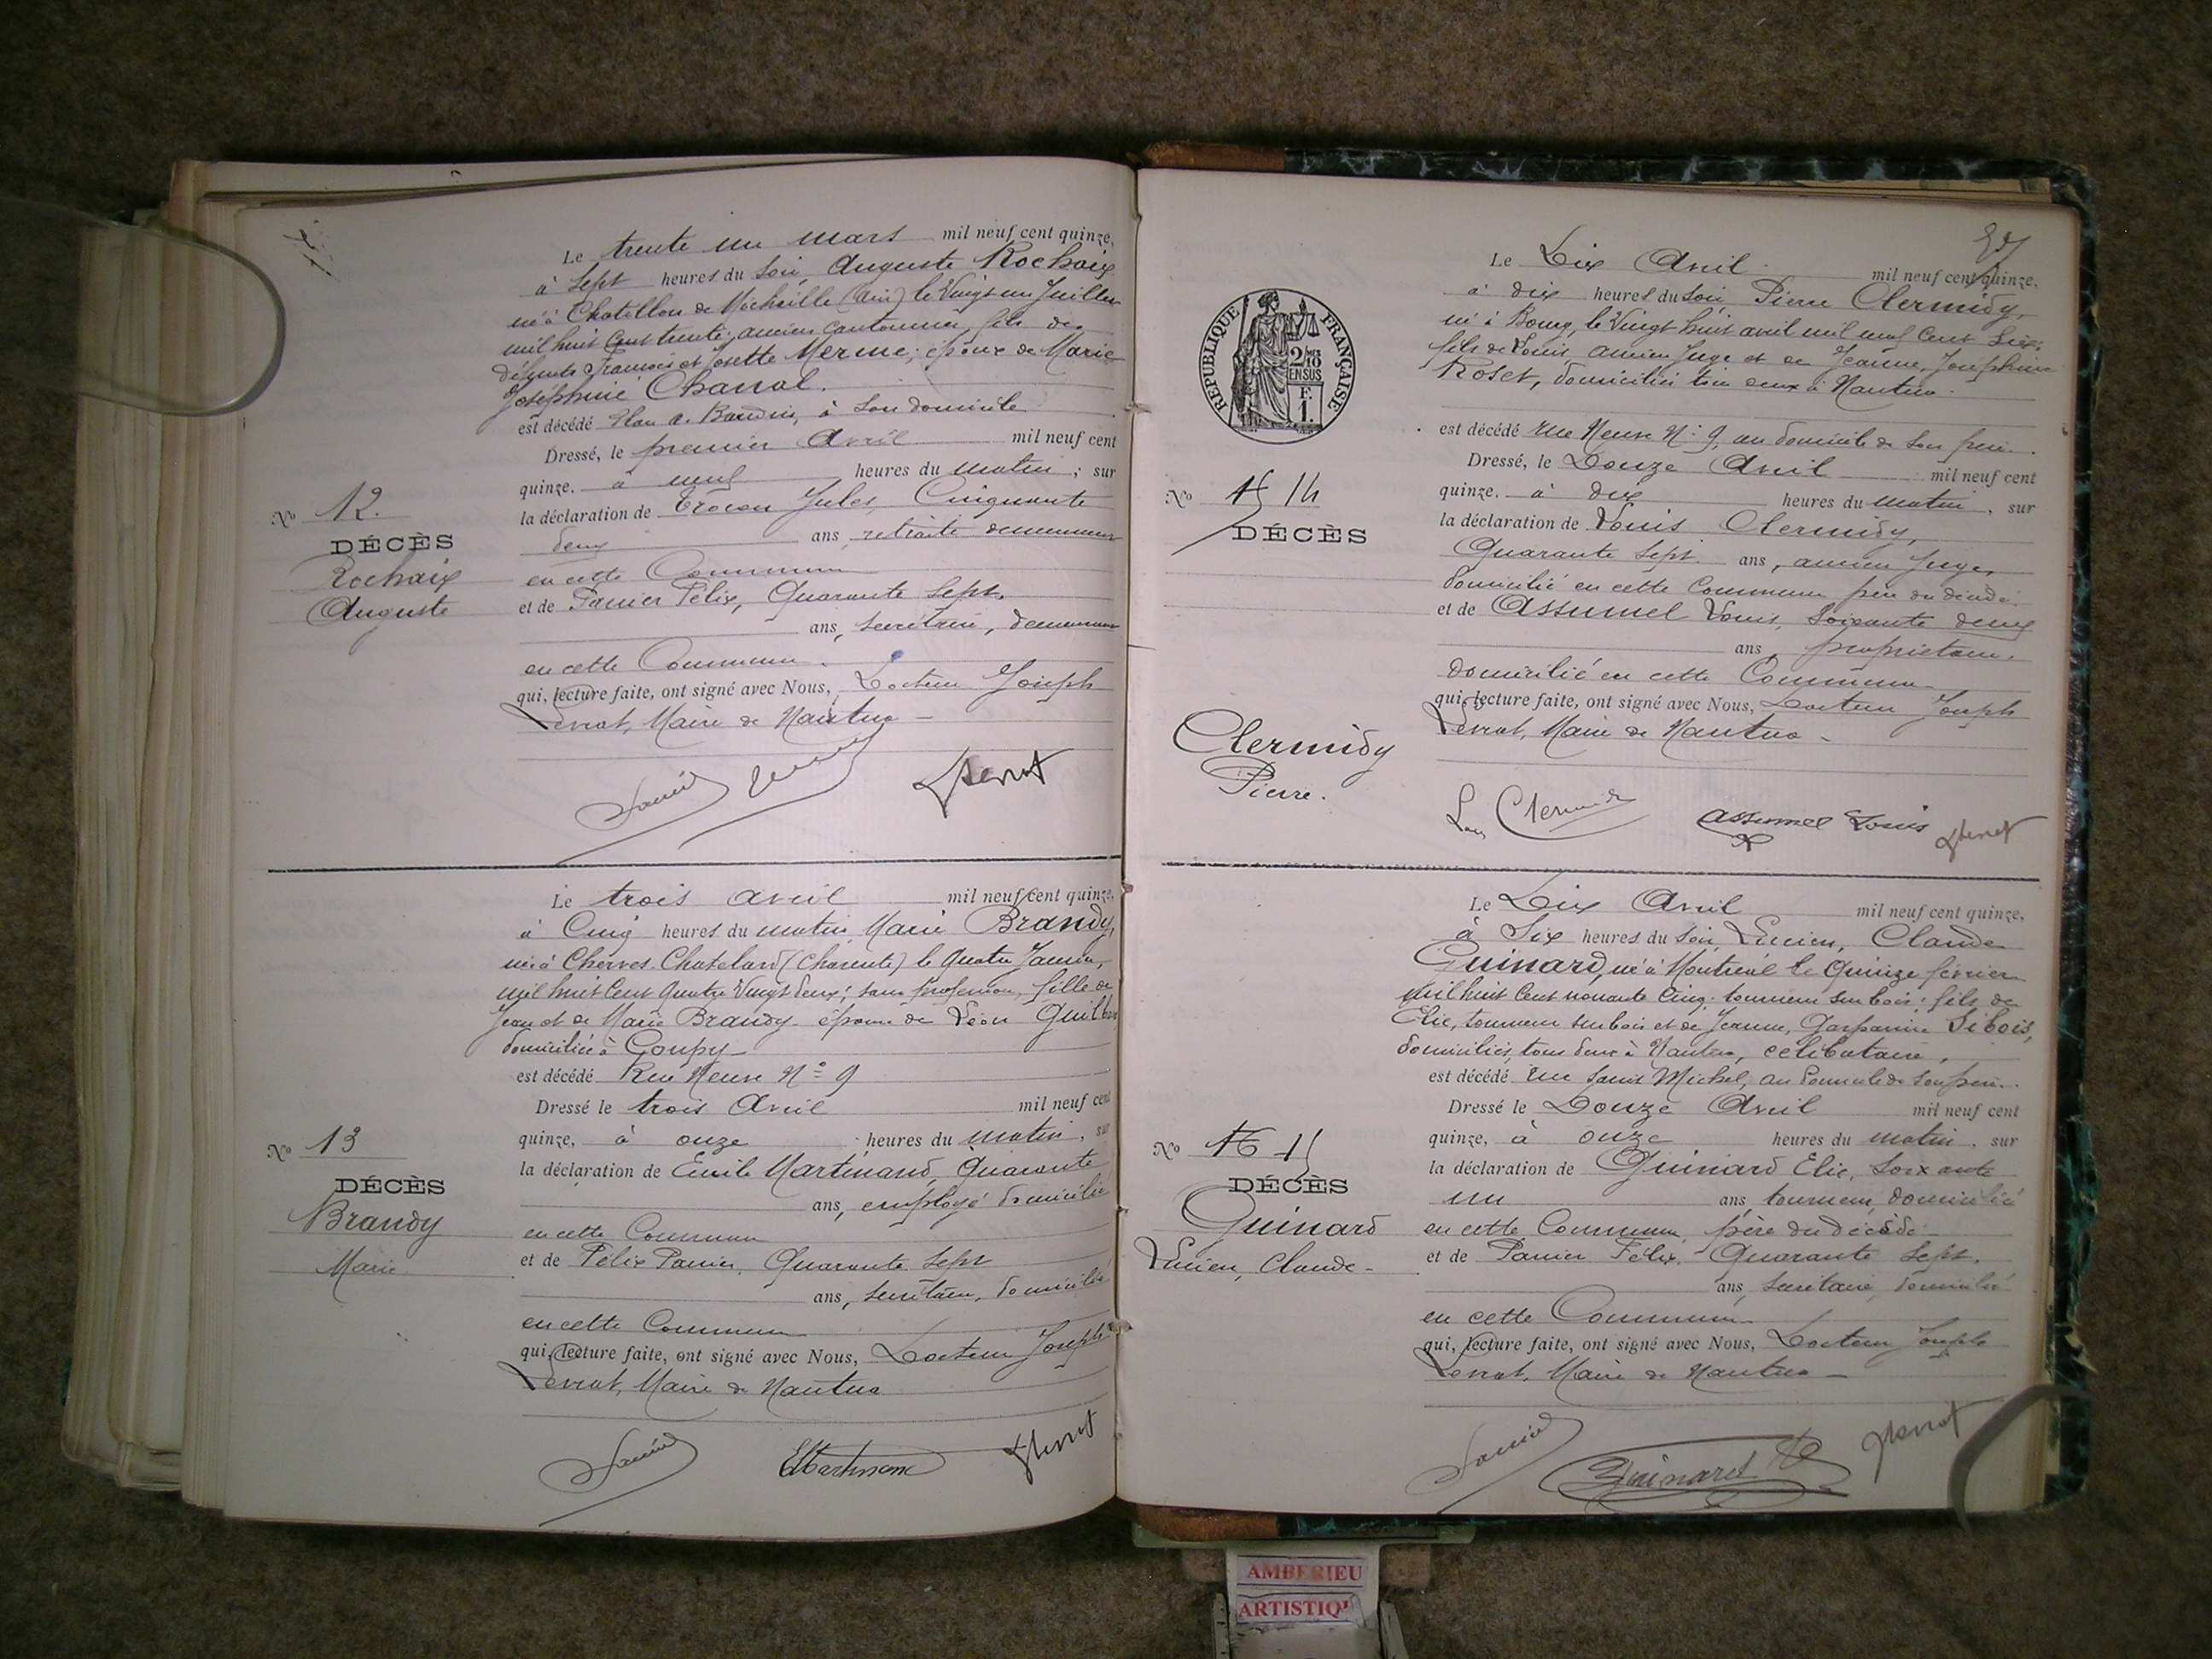 Le trente un mars mil neuf cent quinze,
à Sept heures du Soir Auguste Rochaix
né à Chatillon de Michaille (Ain) le Vingt un Juillet
mil huit Cent trente; ancien Cantonnier, fils de
défunts François et Josette Merme; époux de Marie
Joséphine Chanal.
est décédé à son domicile
Dressé, le premier Avril mil neuf cent
quinze. à neuf heures du matin; sur
la déclaration de Jules, Cinquante
deux ans, retraité demeurant
en cette Commune
et de Panier Félix, Quarante Sept.
ans, secrétaire, demeurant
en cette Commune.
qui, lecture faite, ont signé avec Nous, Docteur Joseph
Levrat, Maire de Nantua
No 12.
DÉCÈS
Rochaix
Auguste
Le trois avril mil neuf cent quinze,
à Cinq heures du matin, Marie Brandy,
née à Cherves-Chatelard (Charente) le Quatre Janvier,
mil huit Cent Quatre Vingt deux; sans profession, fille de
Jean et de Marie Brandy épouse de Léon
domiciliée à Goupy
est décédé Rue Neuve No 9
Dressé le trois Avril mil neuf cent
quinze, à onze heures du matin, sur
la déclaration de Emile Martinand, Quarante
ans, employé domicilié
en cette Commune
et de Félix Panier, Quarante Sept
ans, secrétaire, domicilié
en cette Commune
qui, lecture faite, ont signé avec Nous, Docteur Joseph
Levrat, Maire de Nantua
No 13
DÉCÈS
Brandy
Marie
RÉPUBLIQUE FRANÇAISE
2/10
EN SUS
F.
1.
Le Dix Avril mil neuf cent quinze,
à dix heures du soir Pierre Clermidy,
né à Bourg, le Vingt huit avril mil neuf Cent Six,
fils de Louis, ancien Juge et de Jeanne, Joséphine
Roset, domiciliés tous deux à Nantua.
est décédé rue Neuve No 9, au domicile de son père.
Dressé, le Douze Avril mil neuf cent
quinze. à dix heures du matin, sur
la déclaration de Louis Clermidy,
Quarante Sept ans, ancien Juge,
domicilié en cette Commune père du décédé.
et de Assumel Louis, Soixante deux
ans, propriétaire,
domicilié en cette Commune
qui, lecture faite, ont signé avec Nous, Docteur Joseph
Levrat, Maire de Nantua
No 15 14
DÉCÈS
Clermidy
Pierre.
Assumel Louis
Le Dix Avril mil neuf cent quinze,
à Six heures du Soir, Lucien, Claude
Guinard, né à Montréal le Quinze février
mil huit Cent nonante Cinq; tourneur sur bois; fils de
Elie, tourneur sur bois et de Jeanne, Gasparine Sibois,
domiciliés tous deux à Nantua, célibataire,
est décédé rue Saint Michel, au domicile de son père.
Dressé le Douze Avril mil neuf cent
quinze, à onze heures du matin, sur
la déclaration de Guinard Elie, Soixante
un ans, tourneur, domicilié
en cette Commune, père du décédé
et de Panier Félix, Quarante Sept.
ans, secrétaire, domicilié
en cette Commune
qui, lecture faite, ont signé avec Nous, Docteur Joseph
Levrat, Maire de Nantua
No 16 15
DÉCÈS
Guinard
Lucien, Claude
Guinard
AMBERIEU
ARTISTIQ